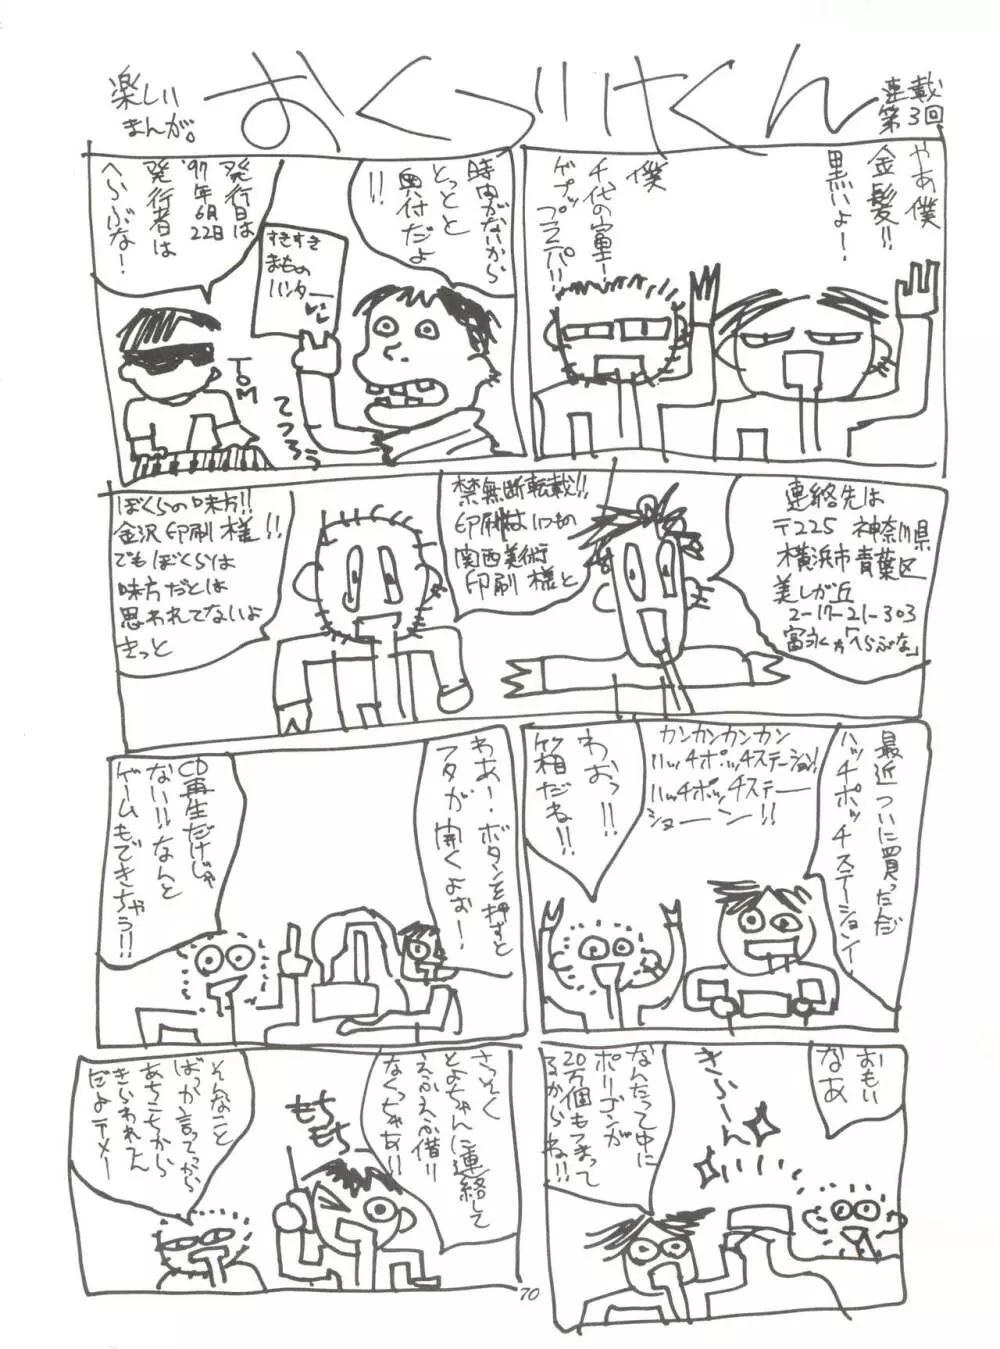 楽しい
まんが。
おくづけくん
連載
第3回
やあ僕
金髪!!
黒いよ!
僕
千代の富士!
ゲプップププパ!!
時間がないから
とっとと
奥付だよ
!!
すきすき
まもの
ハンター
発行日は
'97年
6月
22日
発行者は
へらぶな!
TOM
てつろう
連絡先は
〒225 神奈川県
横浜市青葉区
美しが丘
2-17-21-303
富永方「へらぶな」
禁無断転載!!
印刷はいつもの
関西美術
印刷様と
ぼくらの味方!!
金沢印刷様!!
でもぼくらは
味方だとは
思われてないよ
きっと
最近ついに買っただ
ハッチポッチステーションイ
カンカンカンカン
ハッチポッチステーション!
ハッチポッチステー
ショーン!!
わおっ!!
箱だね!!
わあー、ボタンを押すと
フタが開くよぉー!
CD再生だけじゃ
ない!!なんと
ゲームもできちゃう!!
おもい
なあ
きらーん
なんたって中に
ポリゴンが
20万個もつまって
るからね!!
さっそく
とよちゃんに連絡して
えふえふ借り
なくっちゃあ!!
もち
もち
そんなこと
ばっか言ってっから
あちこちから
きらわれてん
だよテメー
70